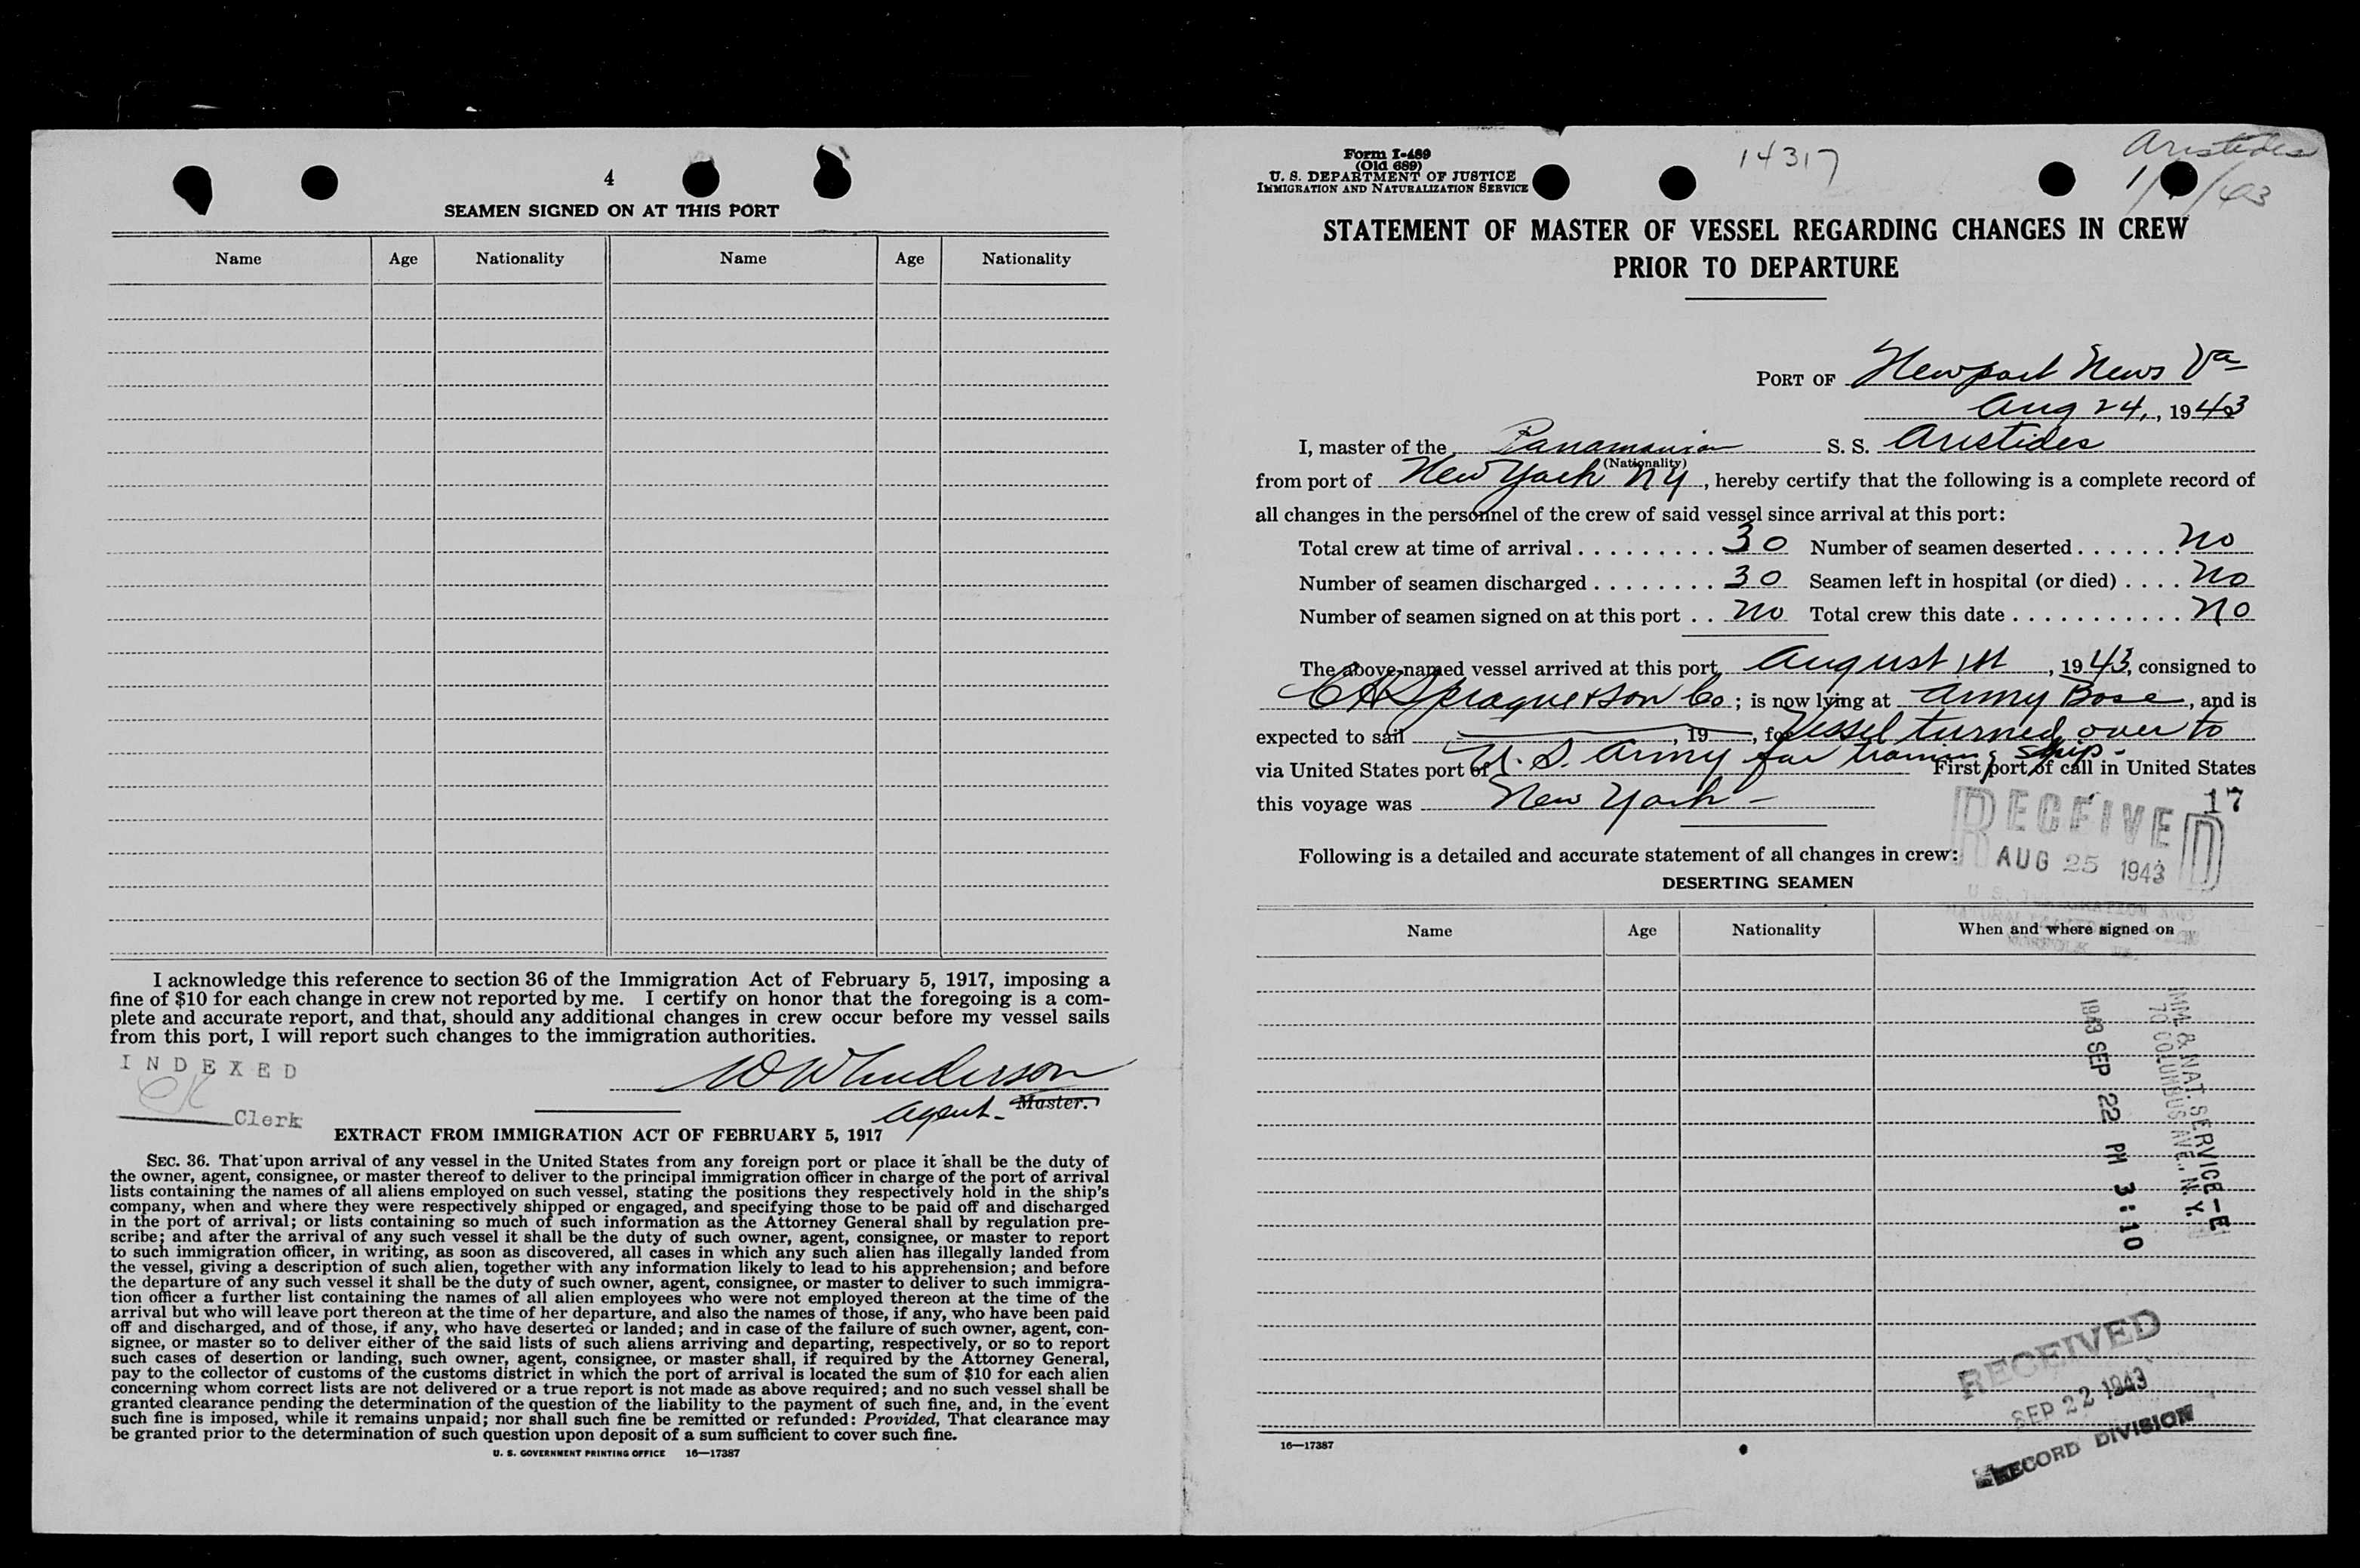 4
SEAMEN SIGNED ON AT THIS PORT
Name Age Nationality Name Age Nationality
I acknowledge this reference to section 36 of the Immigration Act of February 5, 1917, imposing a
fine of $10 for each change in crew not reported by me. I certify on honor that the foregoing is a com-
plete and accurate report, and that, should any additional changes in crew occur before my vessel sails
from this port, I will report such changes to the immigration authorities.
INDEXED
Clerk
W W Anderson
Agent- Master.
EXTRACT FROM IMMIGRATION ACT OF FEBRUARY 5, 1917
SEC. 36. That upon arrival of any vessel in the United States from any foreign port or place it shall be the duty of
the owner, agent, consignee, or master thereof to deliver to the principal immigration officer in charge of the port of arrival
lists containing the names of all aliens employed on such vessel, stating the positions they respectively hold in the ship's
company, when and where they were respectively shipped or engaged, and specifying those to be paid off and discharged
in the port of arrival; or lists containing so much of such information as the Attorney General shall by regulation pre-
scribe; and after the arrival of any such vessel it shall be the duty of such owner, agent, consignee, or master to report
to such immigration officer, in writing, as soon as discovered, all cases in which any such alien has illegally landed from
the vessel, giving a description of such alien, together with any information likely to lead to his apprehension; and before
the departure of any such vessel it shall be the duty of such owner, agent, consignee, or master to deliver to such immigra-
tion officer a further list containing the names of all alien employees who were not employed thereon at the time of the
arrival but who will leave port thereon at the time of her departure, and also the names of those, if any, who have been paid
off and discharged, and of those, if any, who have deserted or landed; and in case of the failure of such owner, agent, con-
signee, or master so to deliver either of the said lists of such aliens arriving and departing, respectively, or so to report
such cases of desertion or landing, such owner, agent, consignee, or master shall, if required by the Attorney General,
pay to the collector of customs of the customs district in which the port of arrival is located the sum of $10 for each alien
concerning whom correct lists are not delivered or a true report is not made as above required; and no such vessel shall be
granted clearance pending the determination of the question of the liability to the payment of such fine, and, in the event
such fine is imposed, while it remains unpaid; nor shall such fine be remitted or refunded: Provided, That clearance may
be granted prior to the determination of such question upon deposit of a sum sufficient to cover such fine.
U. S. GOVERNMENT PRINTING OFFICE 16—17387
Form I-489
(Old 689)
U. S. DEPARTMENT OF JUSTICE
IMMIGRATION AND NATURALIZATION SERVICE
14317
Aristides
STATEMENT OF MASTER OF VESSEL REGARDING CHANGES IN CREW
PRIOR TO DEPARTURE
PORT OF Newport News Va
Aug 24, 1943
I, master of the Panamanian S. S. Aristides
(Nationality)
from port of New York NY, hereby certify that the following is a complete record of
all changes in the personnel of the crew of said vessel since arrival at this port:
Total crew at time of arrival . . . . . . . . . 30 Number of seamen deserted . . . . . . . no
Number of seamen discharged . . . . . . . . 30 Seamen left in hospital (or died) . . . . no
Number of seamen signed on at this port . . no Total crew this date . . . . . . . . . . . no
The above-named vessel arrived at this port August 1st, 1943, consigned to
CH Sprague & Son Co; is now lying at Army Base, and is
expected to sail , 19 , for Vessel turned over to
via United States port of U. S. Army for training ship- First port of call in United States
this voyage was New York - 17
RECEIVED
AUG 25 1943
Following is a detailed and accurate statement of all changes in crew:
DESERTING SEAMEN
Name Age Nationality When and where signed on
IMM. & NAT. SERVICE-E
70 COLUMBUS AVE., N.Y.
1943 SEP 22 PM 3:10
RECEIVED
SEP 22 1943
RECORD DIVISION
16—17387